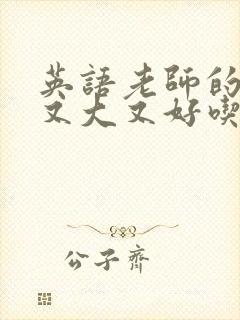 英語老師的
又大又好喫
公子齊